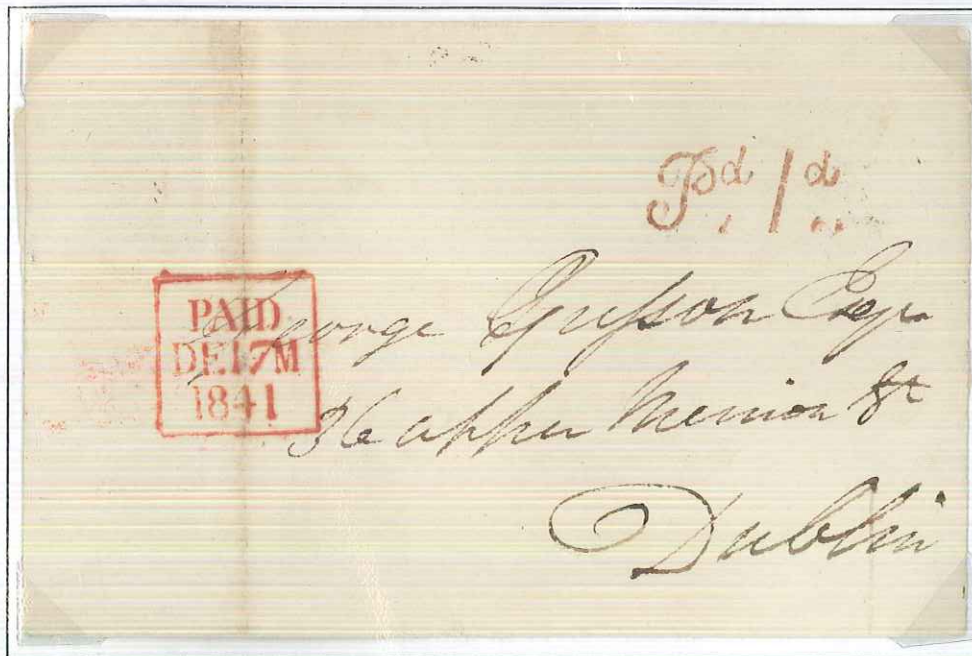 Pd. 1d..
PAID
DE 17 M
1841
George Esqr
36 upper Merrion St
Dublin